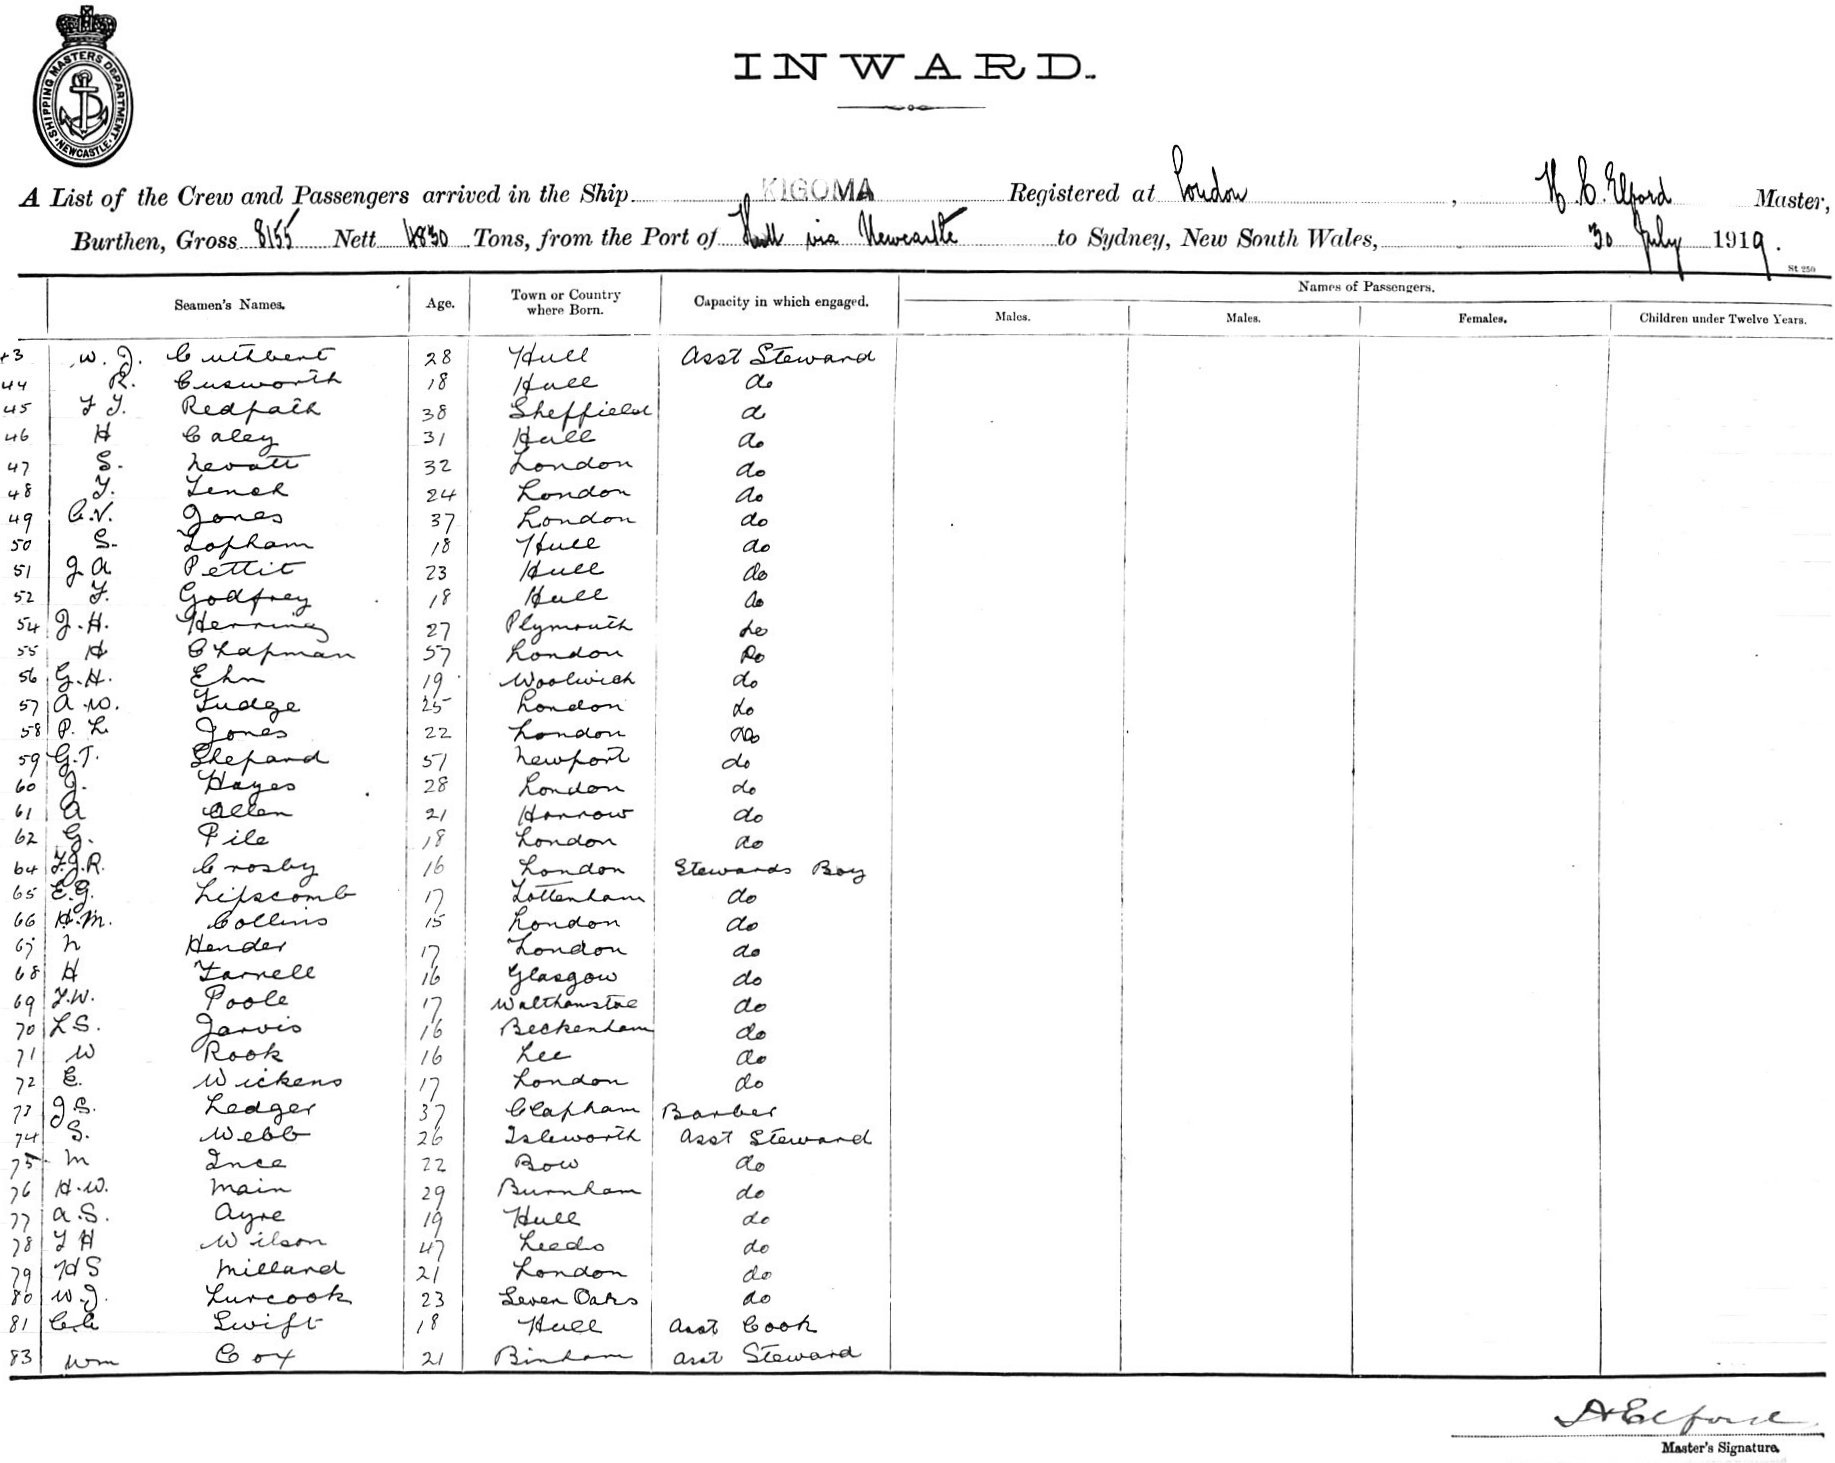 SHIPPING MASTERS DEPARTMENT
NEWCASTLE
INWARD.
A List of the Crew and Passengers arrived in the Ship KIGOMA Registered at London, H C. Elford Master,
Burthen, Gross 8155 Nett 4830 Tons, from the Port of Hull via Newcastle to Sydney, New South Wales, 30 July 1919.
St 250
Seamen's Names. Age. Town or Country where Born. Capacity in which engaged. Names of Passengers.
Males. Males. Females. Children under Twelve Years.
43 W. J. Cuthbert 28 Hull Asst Steward
44 R. Cusworth 18 Hull do
45 F J. Redpath 38 Sheffield d
46 H Caley 31 Hull do
47 S. Levatt 32 London do
48 F. Tench 24 London do
49 C.V. Jones 37 London do
50 S. Topham 18 Hull do
51 J A Pettit 23 Hull do
52 F. Godfrey 18 Hull do
54 J. H. Herring 27 Plymouth do
55 H Chapman 57 London Do
56 G. H. Ehn 19 Woolwich do
57 A. W. Fudge 25 London do
58 P. L Jones 22 London do
59 G.T. Shepard 51 Newport do
60 J. Hayes 28 London do
61 A Allen 21 Harrow do
62 G. Pile 18 London do
64 F.J.R. Crosby 16 London Stewards Boy
65 E.G. Lipscomb 17 Tottenham do
66 H.M. Collins 15 London do
67 N Hender 17 London do
68 H Farnell 16 Glasgow do
69 F.W. Poole 17 Walthamstoe do
70 L S. Jarvis 16 Beckenham do
71 W Rook 16 Lee do
72 E. Wickens 17 London do
73 J.S. Ledger 37 Clapham Barber
74 S. Webb 26 Isleworth Asst Steward
75 M Ince 22 Bow do
76 H.W. Main 29 Burnham do
77 A.S. Ayre 19 Hull do
78 F H Wilson 47 Leeds do
79 H S Millard 21 London do
80 W. J. Lurcook 23 Seven Oaks do
81 Swift 18 Hull Asst Cook
83 Wm Cox 21 Binham Asst Steward
H Elford
Master's Signature.